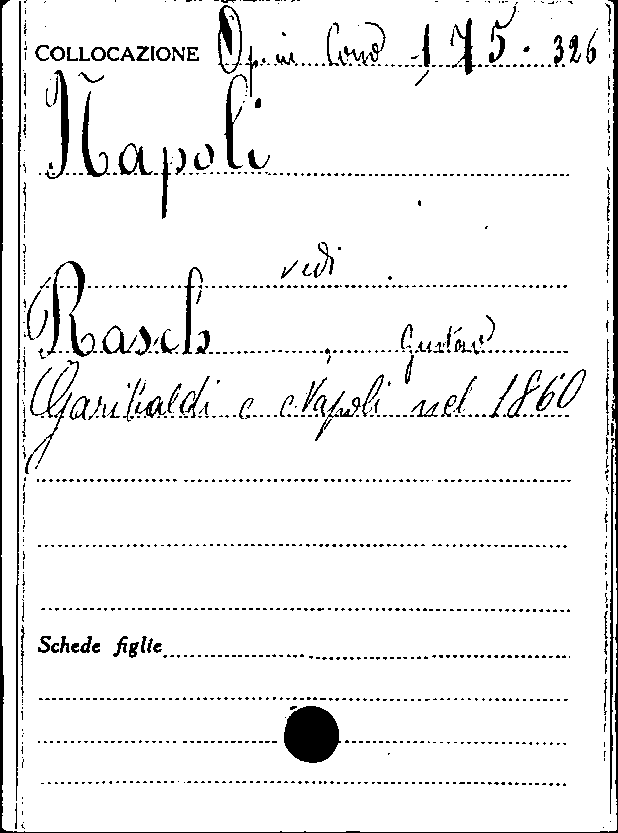 COLLOCAZIONE Op. in Cons 175. 326
Napoli
vedi
Rasch, Gustav
Garibaldi e Napoli nel 1860
Schede figlie